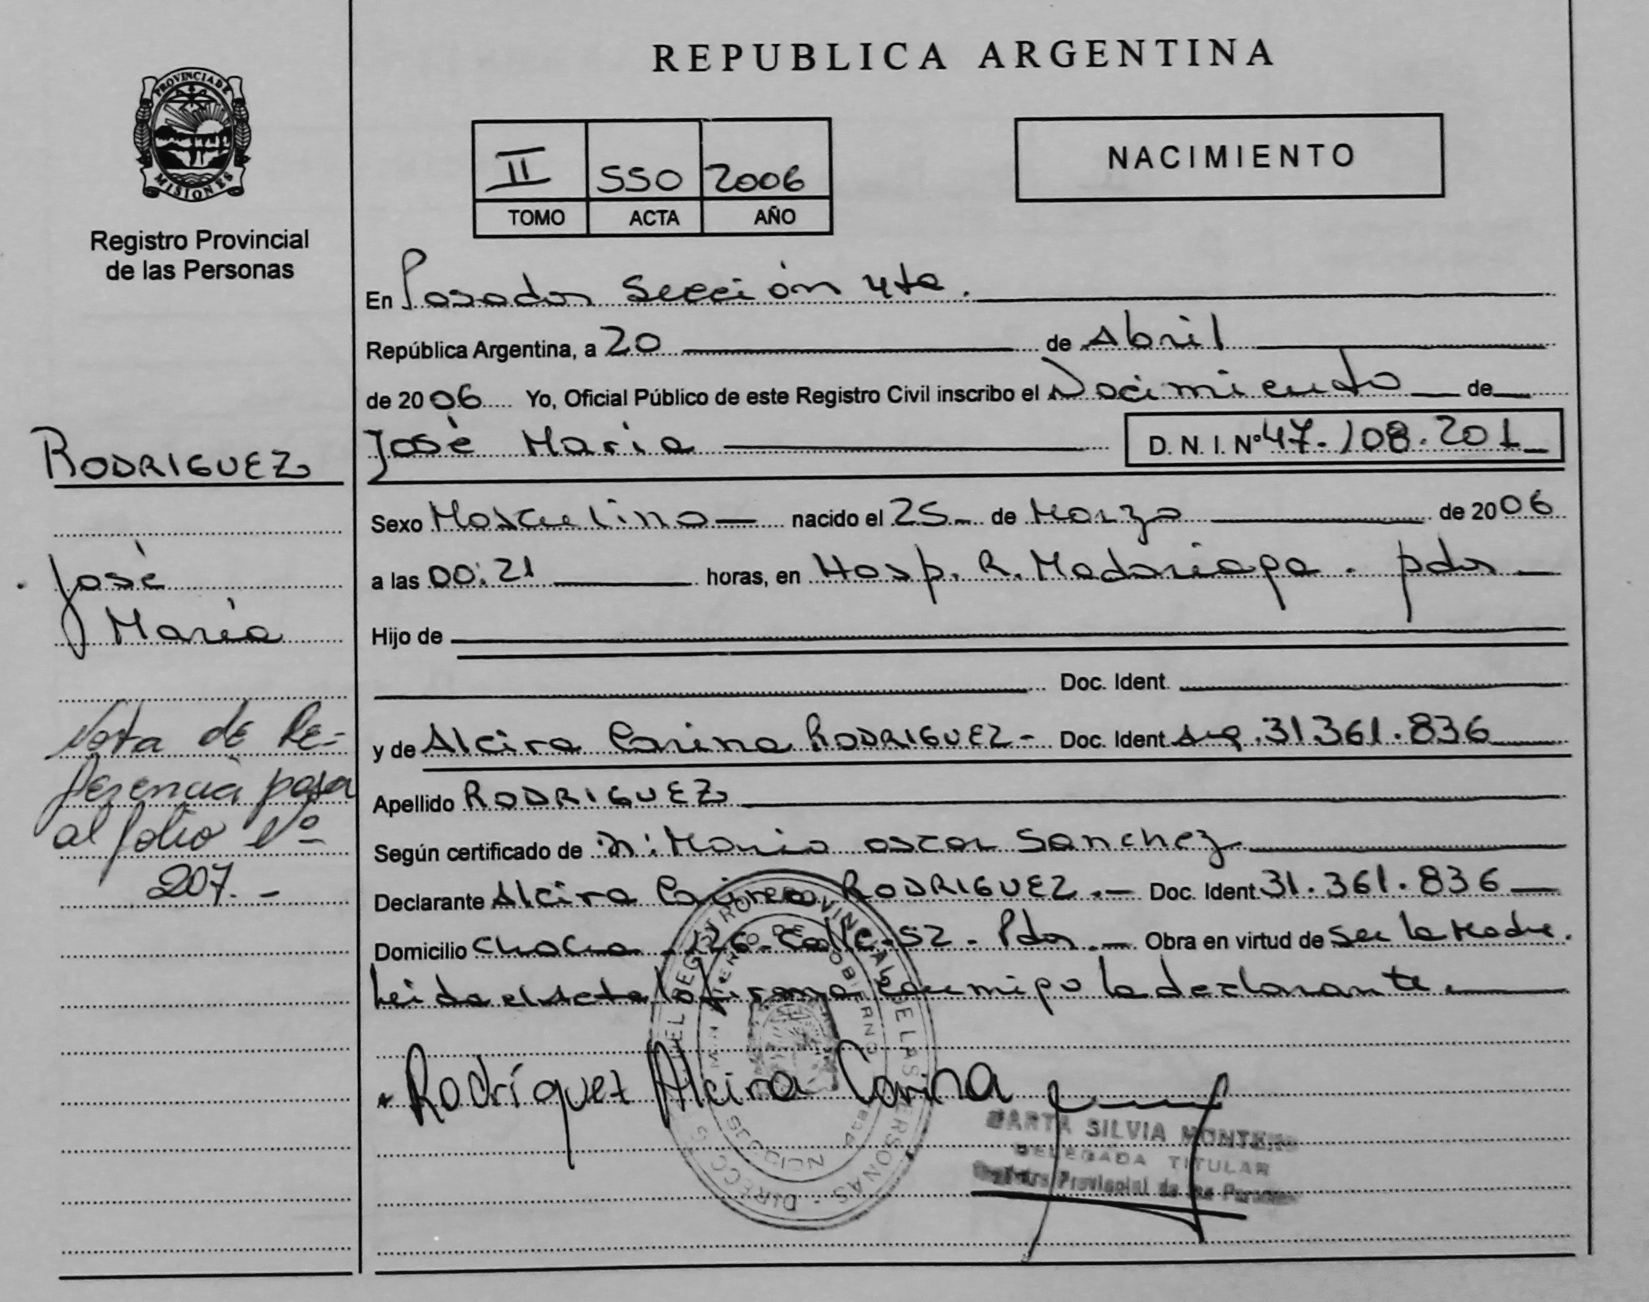 REPUBLICA ARGENTINA
PROVINCIA DE
MISIONES
Registro Provincial
de las Personas
II 550 2006
TOMO ACTA AÑO
NACIMIENTO
En Posadas Sección 4ta.
República Argentina, a 20 de Abril
de 2006 Yo, Oficial Público de este Registro Civil inscribo el Nacimiento de
José María D. N. I. Nº 47.108.201
Sexo Masculino nacido el 25 de Marzo de 2006
a las 00:21 horas, en Hosp. R. Madariaga. pdas
Hijo de
Doc. Ident.
y de Alcira Carina RODRIGUEZ Doc. Ident. Arg. 31.361.836
Apellido RODRIGUEZ
Según certificado de Mario Oscar Sanchez
Declarante Alcira Carina RODRIGUEZ Doc. Ident. 31.361.836
Domicilio Chacra 126 Calle 52 Pdas. Obra en virtud de ser la Madre.
Leida el Acta la firma conmigo la declarante.
Rodríguez Alcira Carina
MARTA SILVIA MONTE
DELEGADA TITULAR
Registro Provincial de las Personas
RODRIGUEZ
José
María
Nota de Re-
ferencia pasa
al folio Nº
207.-